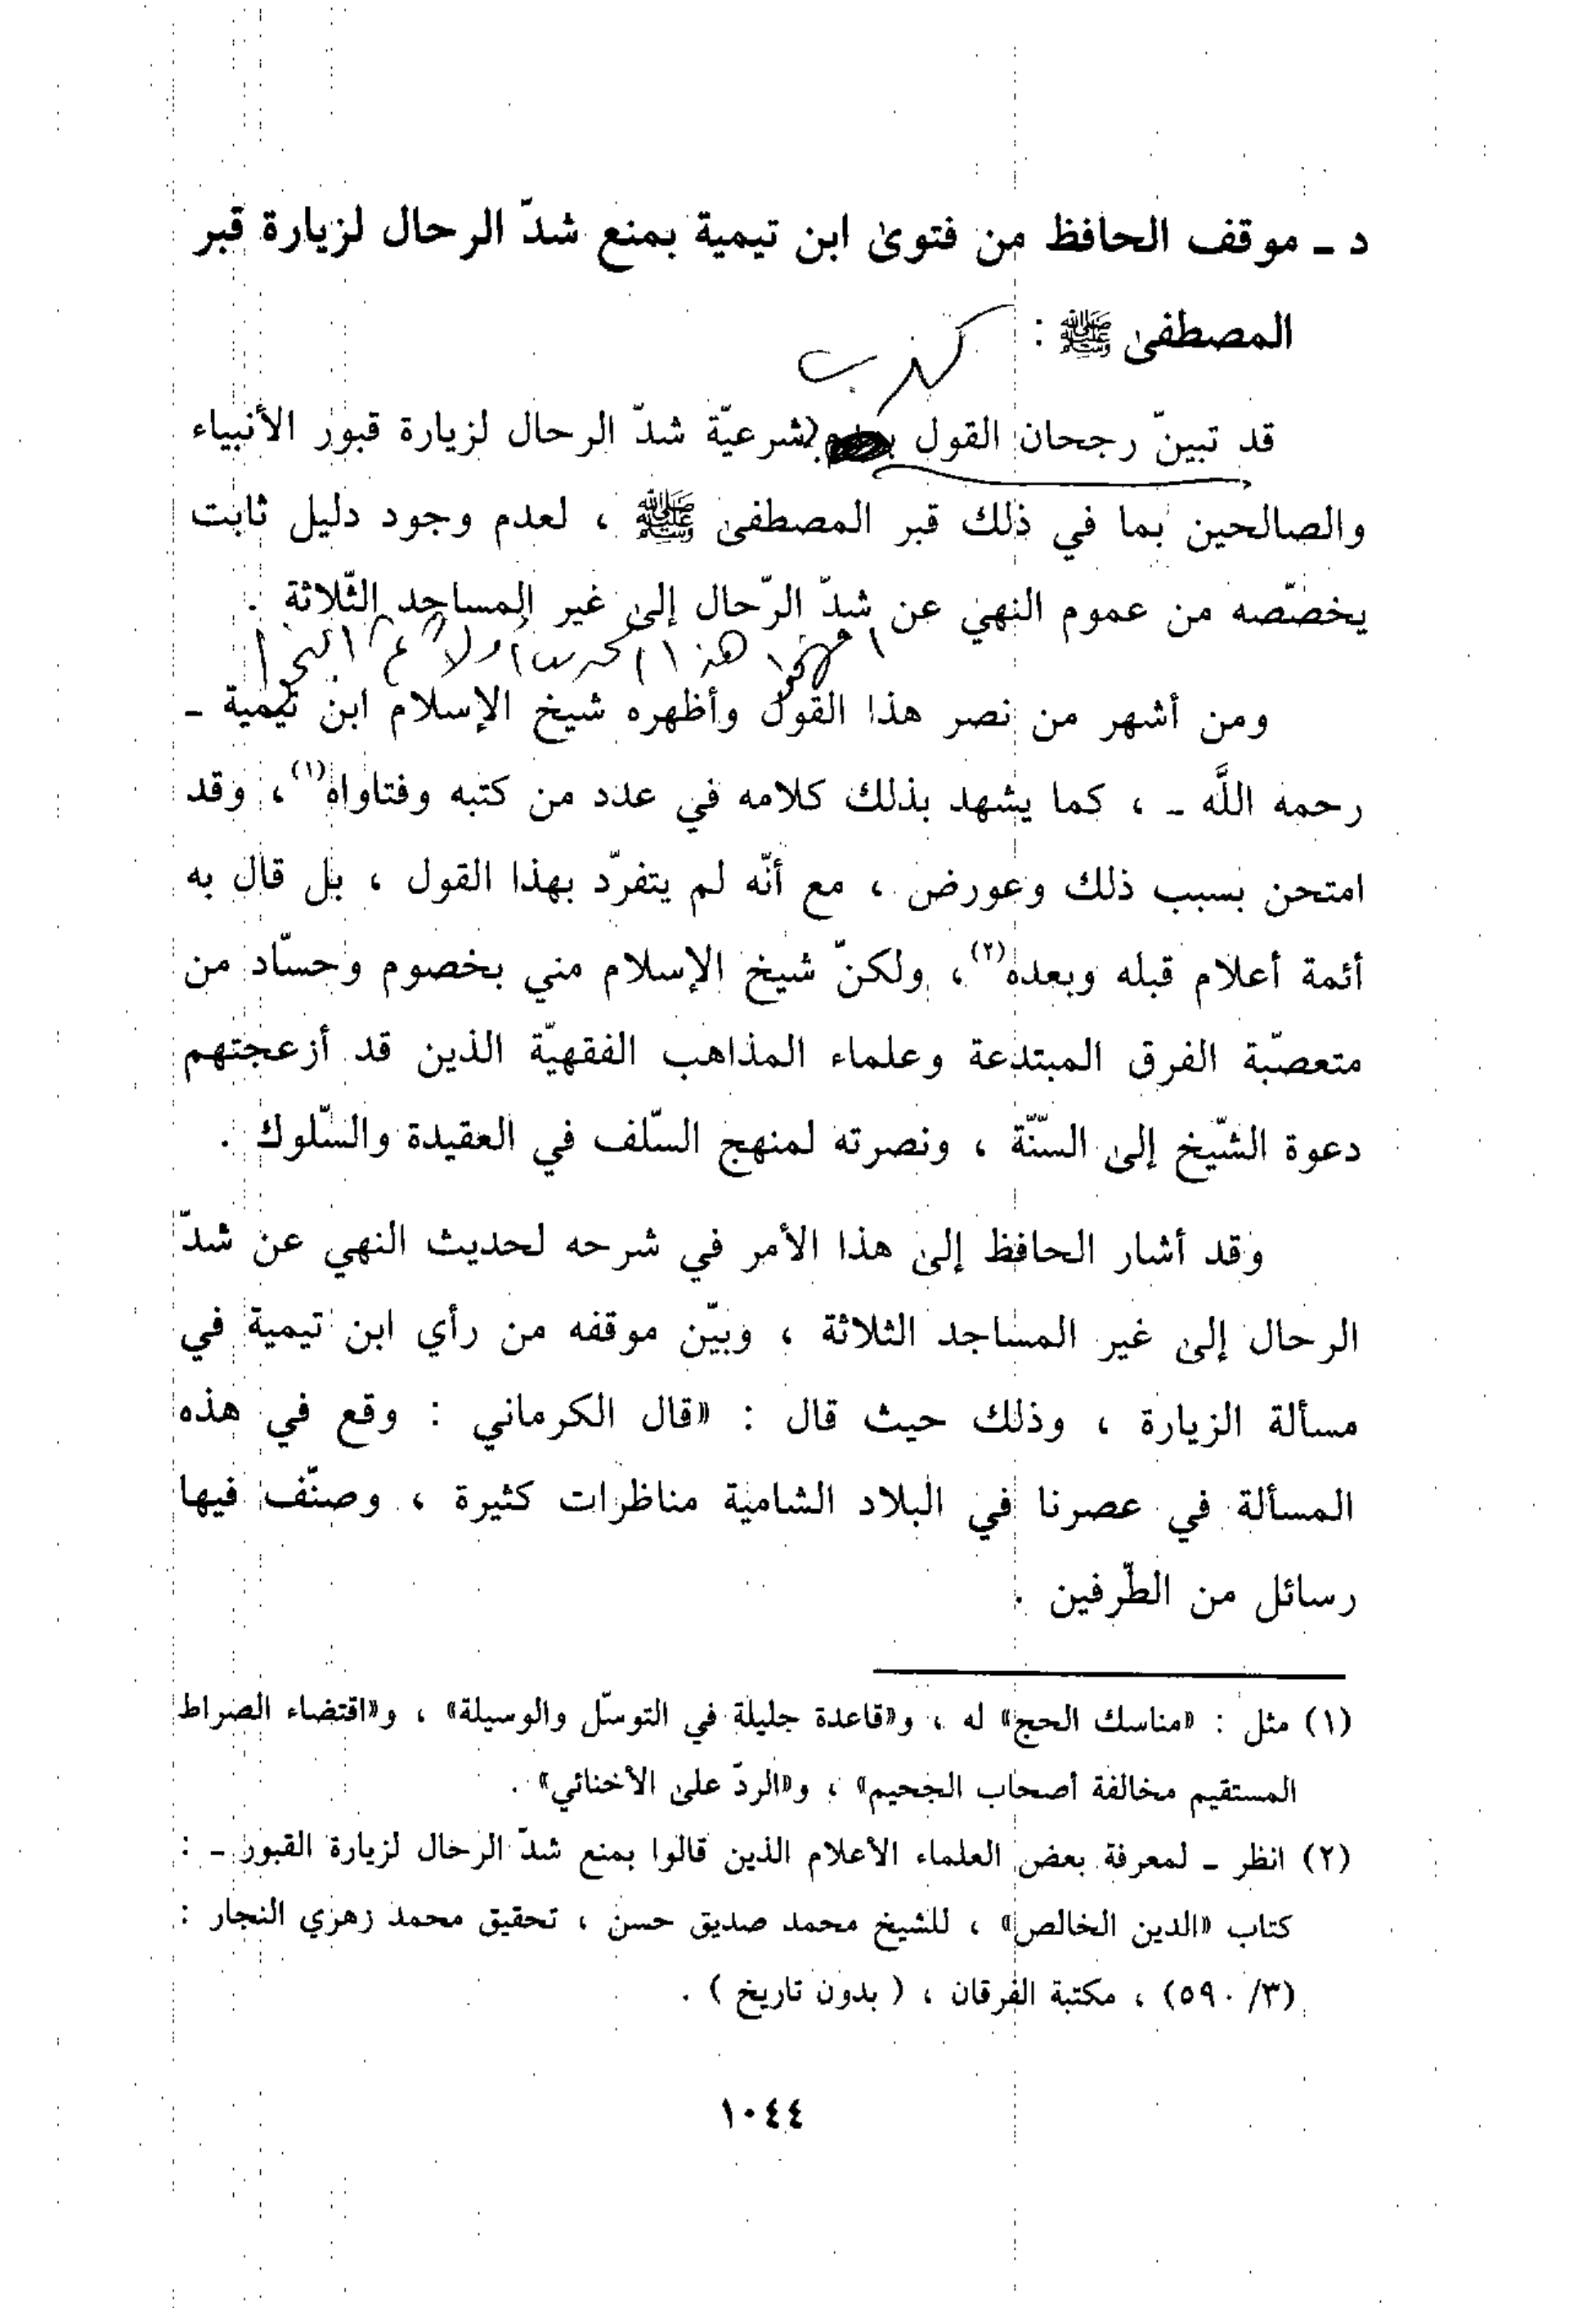 د ـ موقف الحافظ من فتوىٰ ابن تيمية بمنع شدّ الرحال لزيارة قبر
المصطفىٰ ﷺ :
كذب
قد تبينّ رجحان القول شرعيّة شدّ الرحال لزيارة قبور الأنبياء
والصالحين بما في ذلك قبر المصطفىٰ ﷺ ، لعدم وجود دليل ثابت
يخصّصه من عموم النهي عن شدّ الرّحال إلى غير المساجد الثّلاثة .
افهموا هذا الحديث أولا ثم
ومن أشهر من نصر هذا القول وأظهره شيخ الإسلام ابن تيمية ـ
رحمه اللَّه ـ ، كما يشهد بذلك كلامه في عدد من كتبه وفتاواه(١) ، وقد
امتحن بسبب ذلك وعورض ، مع أنّه لم يتفرّد بهذا القول ، بل قال به
أئمة أعلام قبله وبعده(٢) ، ولكنّ شيخ الإسلام مني بخصوم وحسّاد من
متعصّبة الفرق المبتدعة وعلماء المذاهب الفقهيّة الذين قد أزعجتهم
دعوة الشّيخ إلى السّنّة ، ونصرته لمنهج السّلف في العقيدة والسّلوك .
وقد أشار الحافظ إلى هذا الأمر في شرحه لحديث النهي عن شدّ
الرحال إلى غير المساجد الثلاثة ، وبيّن موقفه من رأي ابن تيمية في
مسألة الزيارة ، وذلك حيث قال : «قال الكرماني : وقع في هذه
المسألة في عصرنا في البلاد الشامية مناظرات كثيرة ، وصنّف فيها
رسائل من الطّرفين .
(١) مثل : «مناسك الحج» له ، و«قاعدة جليلة في التوسّل والوسيلة» ، و«اقتضاء الصراط
المستقيم مخالفة أصحاب الجحيم» ، و«الردّ على الأخنائي» .
(٢) انظر ـ لمعرفة بعض العلماء الأعلام الذين قالوا بمنع شدّ الرحال لزيارة القبور ـ :
كتاب «الدين الخالص» ، للشيخ محمد صديق حسن ، تحقيق محمد زهري النجار :
(٣/ ٥٩٠) ، مكتبة الفرقان ، ( بدون تاريخ ) .
١٠٤٤